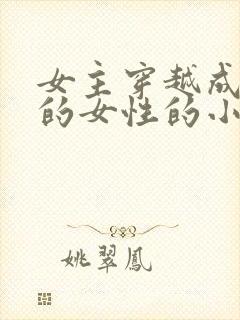 女主穿越成
的女性的小
姚翠鳳